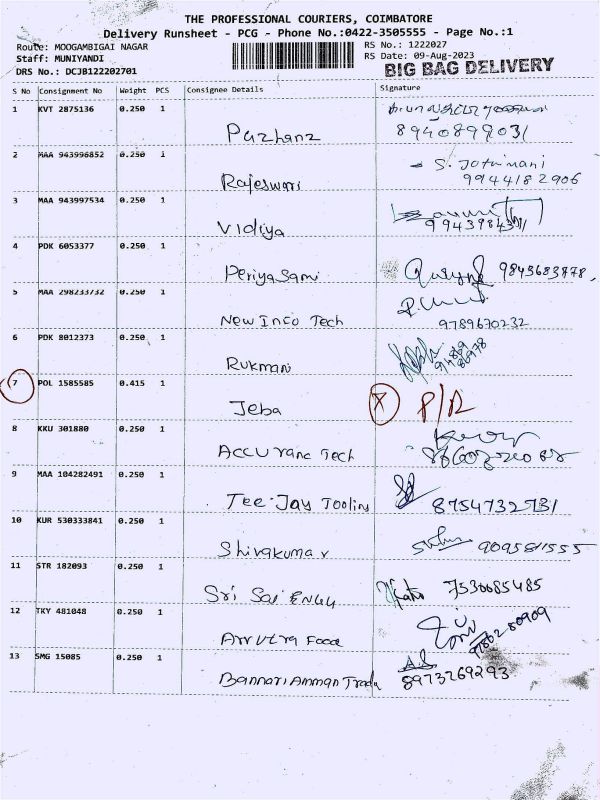 THE PROFESSIONAL COURIERS, COIMBATORE
Delivery Runsheet - PCG - Phone No.:0422-3505555 - Page No.:1
Route: MOOGAMBIGAI NAGAR RS No.: 1222027
Staff: MUNIYANDI RS Date: 09-Aug-2023
DRS No.: DCJB122202701 BIG BAG DELIVERY
S No Consignment No Weight PCS Consignee Details Signature
1 KVT 2875136 0.250 1
Pazhani 8940899031
2 MAA 943996852 0.250 1 S. Jothimani
Rajeswari 9944182906
3 MAA 943997534 0.250 1
Vidiya
4 PDK 6053377 0.250 1
Periyasami 9843683878,
5 MAA 298233732 0.250 1
New Info Tech 9789670232
6 PDK 8012373 0.250 1
Rukmani
7 POL 1585585 0.415 1
Jeba X P/R
8 KKU 301880 0.250 1
Accurane Tech
9 MAA 104282491 0.250 1
Tee-Jay Tooling 8754732731
10 KUR 530333841 0.250 1
Shivakumar 9095811555
11 STR 182093 0.250 1
Sri Sai Engg 7530085485
12 TKY 481048 0.250 1
Food
13 SMG 15085 0.250 1
Bannari Amman Trada 8973269293